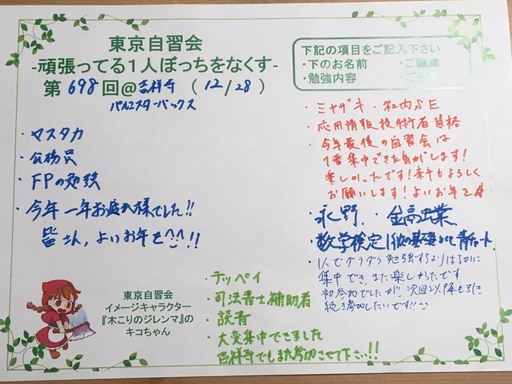 東京自習会
-頑張ってる1人ぼっちをなくす-
第698回@吉祥寺(12/28)
パルコスターバックス
下記の項目をご記入下さい
・下のお名前 ・ご職業
・勉強内容 ・ご感想
・ヤスタカ
・公務員
・FPの勉強
・今年一年お疲れ様でした!!
皆さん、よいお年を^^!!
・ミヤザキ ・社内SE
・応用情報技術者資格
・今年最後の自習会は
1番集中できた気がします!
楽しかったです!来年もよろしく
お願いします!よいお年を
・永野 ・金高工業
・数学検定1級の基礎として青チャート
1人でダラダラ勉強するよりはるかに
集中でき、また楽しかったです
初参加でしたが、次回2019年も引き
続き参加したいです!!
・テッペイ
・司法書士補助者
・読書
・大変集中できました
吉祥寺でもまた参加させて下さい!!
東京自習会
イメージキャラクター
『木こりのジレンマ』の
キコちゃん